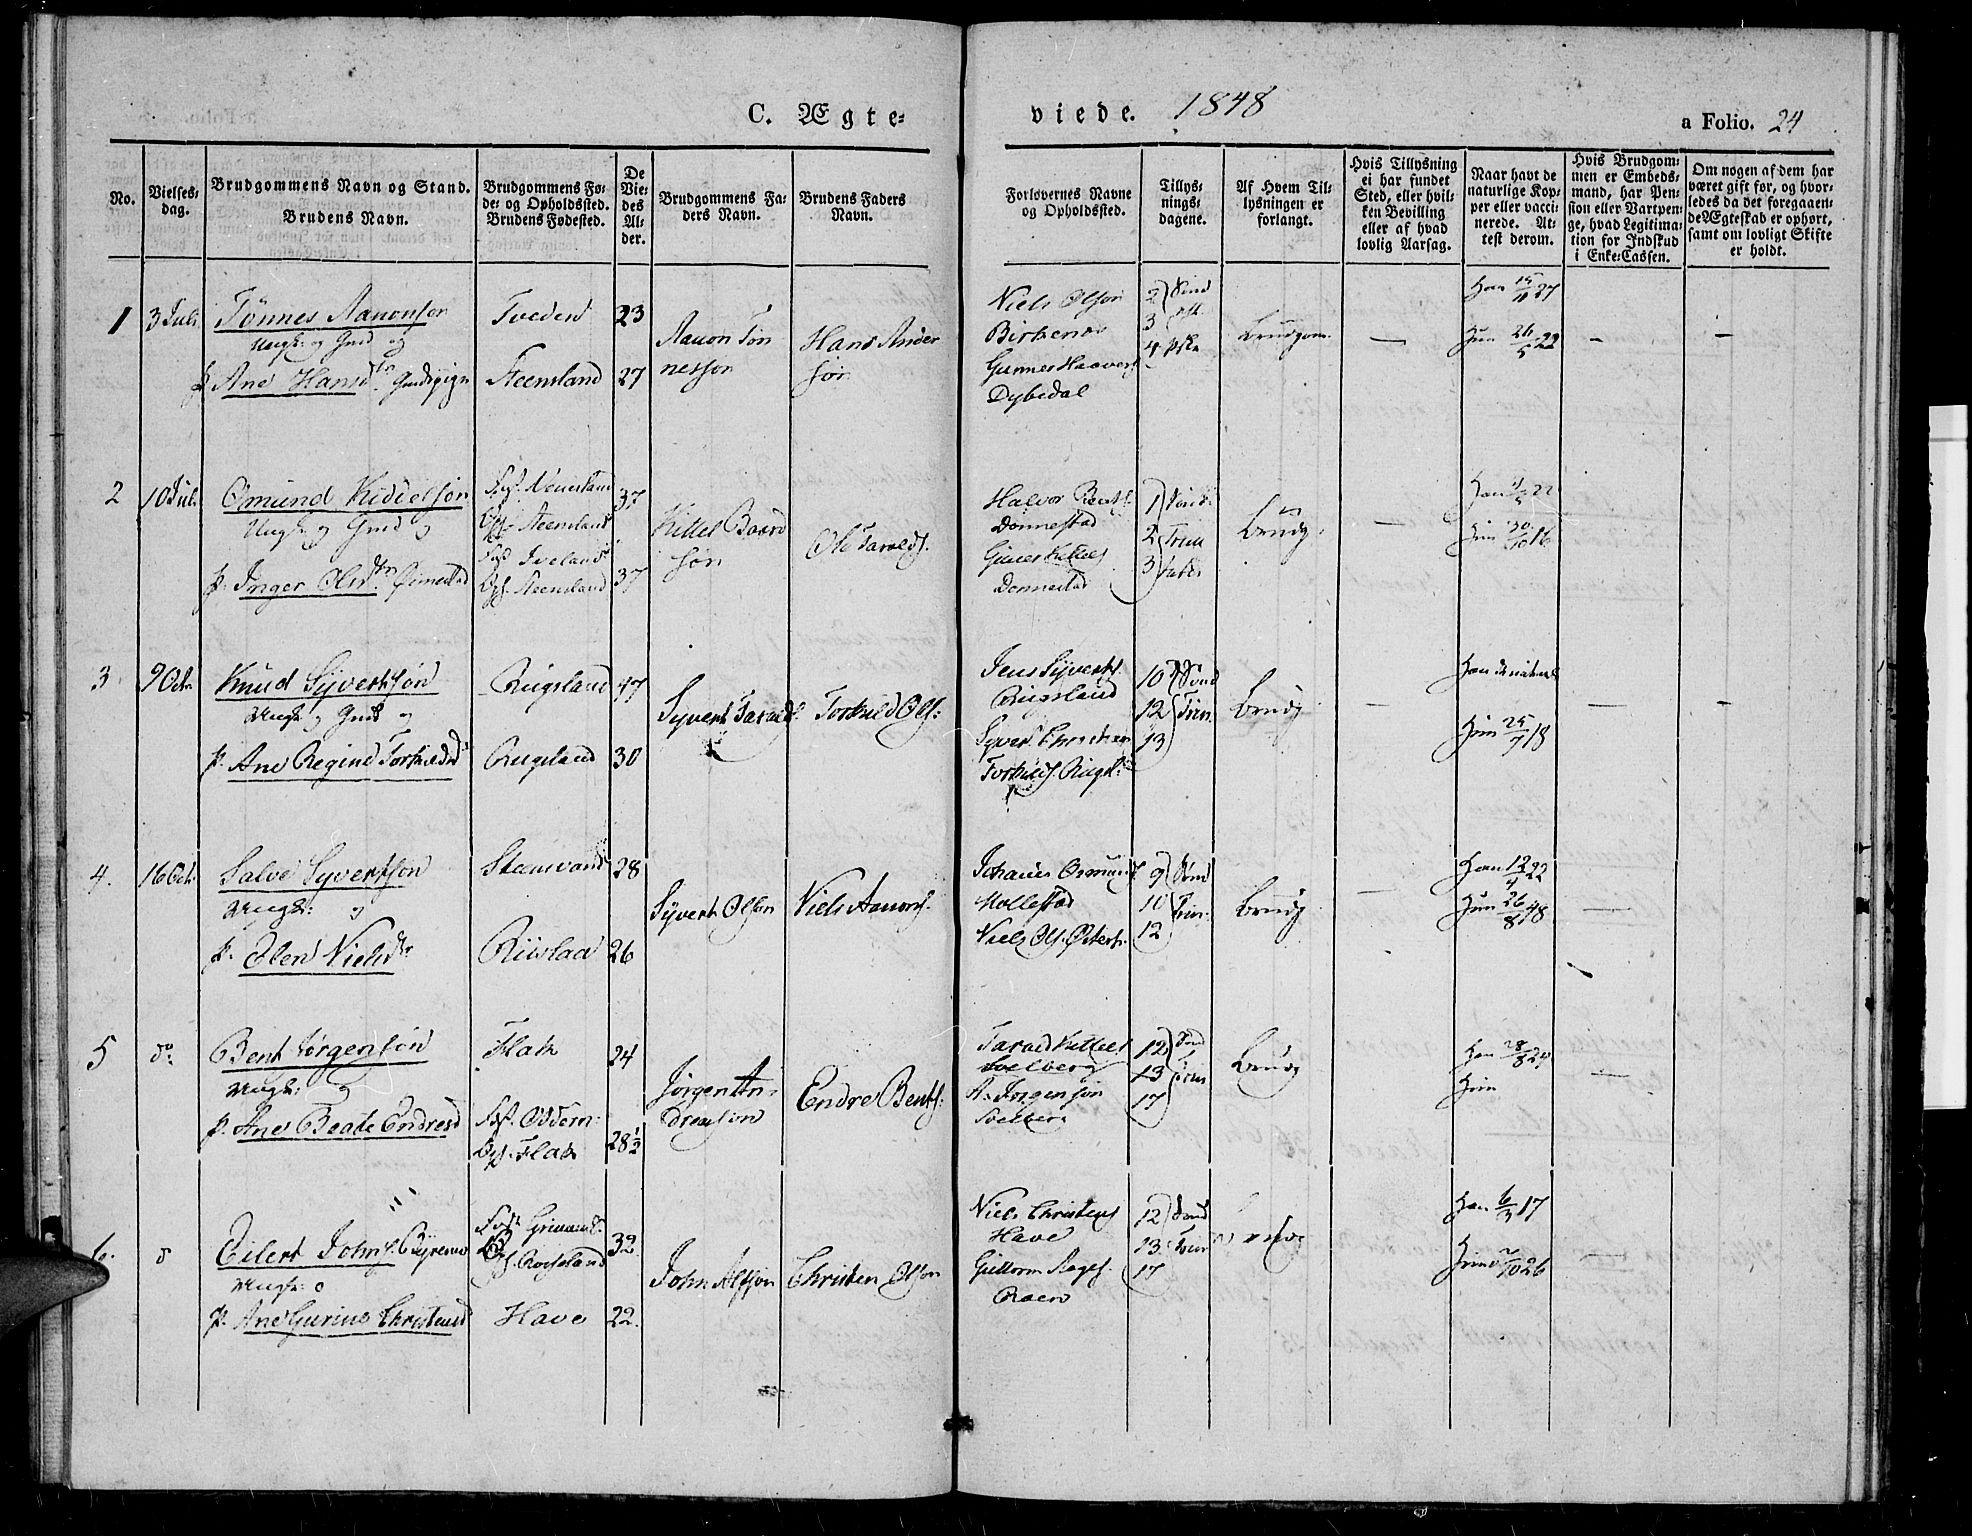 C. Ægte-
viede. 1848
a Folio. 24
No.
Vielses-
dag.
Brudgommens Navn og Stand.
Brudens Navn.
Brudgommens Fø-
de- og Opholdssted.
Brudens Fødested.
De
Vie-
des
Al-
der.
Brudgommens Fa-
ders Navn.
Brudens Faders
Navn.
Forlovernes Navne
og Opholdssted.
Tillys-
nings-
dagene.
Af Hvem Til-
lysningen er
forlangt.
Hvis Tillysning
ei har fundet
Sted, eller hvil-
ken Bevilling
eller af hvad
lovlig Aarsag.
Naar havt de
naturlige Kop-
per eller vacci-
nerede. At-
test derom.
Hvis Brudgom-
men er Embeds-
mand, har Pen-
sion eller Vartpen-
ge, hvad Legitima-
tion for Indskud
i Enke-Cassen.
Om nogen af dem har
været gift før, og hvor-
ledes da det foregaaen-
de Ægteskab er ophørt,
samt om lovligt Skifte
er holdt.
1
3 Juli
Tønnes Aanonsøn
Ungk: og Gmd og
P. Ane Hansdtr
Tveden
Steensland
23
27
Aanon Tøn
nessøn
Hans Ander
søn
Niels Olsøn
Birkenæs
Gunner Haavors
Dybedal
2
3
4
Brudgom.
—
Han 15/11 27
Hun 26/5 22
—
—
2
10 Juli
Osmund Kiddelsøn
Ungk: og Gmd og
p. Inger Olsdtr
Opst. Steensland
Fst. Iveland
Ops. Steensland
37
37
Kittel Baard
søn
Ole Taralds.
Halvor Bents.
Donnestad
Gunner Kittels
Donnestad
1 Sønd
2 Trin
3
Brudg.
—
Han
Hun 30/10 16
3
9 Octr
Knud Syvertsøn
Ungk og Gmd og
p. Ane Regine Torkildsd
Rugsland
Rugsland
47
30
Syvert Taralds.
Torkild Ols:
Jens Syverts.
Rugsland
Syvert Christian
Torkilds. Rugsl:
10 Sønd
12 Trin.
13
Brudg
—
Han de naturl
Hun 25/7 18
—
—
4.
16 Oct
Salve Syvertsøn
Ungk: og
p. Elen Nielsdtr
Stamvand
Riislaa
28
26
Syvert Olsøn
Niels Aanons.
Johannes Osmunds
Mollestad
Niels Ols. Østerh.
9 Sønd
10 Trin.
12
Brudg
—
Han 12/4 22
Hun 26/8 48
—
5
do
Bent Jørgensøn
Ungk: og
p. Ane Beate Endresd
Flak
Fst. Oddern.
Ops. Flak
24
28 1/2
Jørgen An-
dreasøn
Endre Bents.
Tarald Kittels
Soelberg
A. Jørgensøn
Soelberg
12 Sønd
13 Trin
17
Brudg
Han 28/8 24
Hun
—
6.
do
Eilert Johns. Byrenæs
Ungk: o
p. Ane Gurine Christensd
Ops. Rosseland
Have
32
22.
John Alfsøn
Christen Olsøn
Niels Christens
Have
Guttorm Aages.
Roen
12 Sønd
13. Trin
17
Han 6/3 17
Hun 7/10 26
—